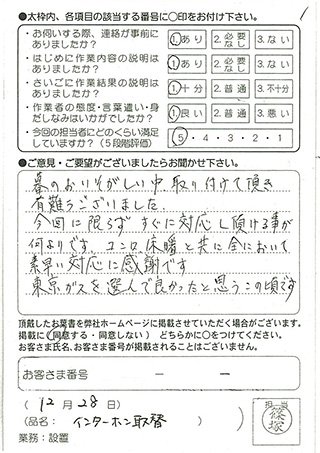 1
●太枠内、各項目の該当する番号に○印をお付け下さい。
・お伺いする際、連絡が事前にありましたか？ 1.あり 2.必要なし 3.ない
・はじめに作業内容の説明はありましたか？ 1.あり 2.必要なし 3.ない
・さいごに作業結果の説明はありましたか？ 1.十分 2.普通 3.不十分
・作業者の態度・言葉遣い・身だしなみはいかがでしたか？ 1.良い 2.普通 3.悪い
・今回の担当者にどのくらい満足していますか？（5段階評価） 5・4・3・2・1
●ご意見・ご要望がございましたらお聞かせ下さい。
暮のおいそがしい中、取り付けて頂き
有難うございました。
今回に限らず すぐに対応し頂ける事が
何よりです。コンロ、床暖と共に全において
素早い対応に感謝です
東京ガスを選んで良かったと思うこの頃です
頂戴したお葉書を弊社ホームページに掲載させていただく場合がございます。
掲載に（同意する・同意しない） どちらかに○をつけてください。
お客さま氏名、お客さま番号が掲載されることはございません。
お客さま番号 － －
（ 12 月 28 日）
（品名： インターホン取替 ）
業務：設置
担当
篠塚